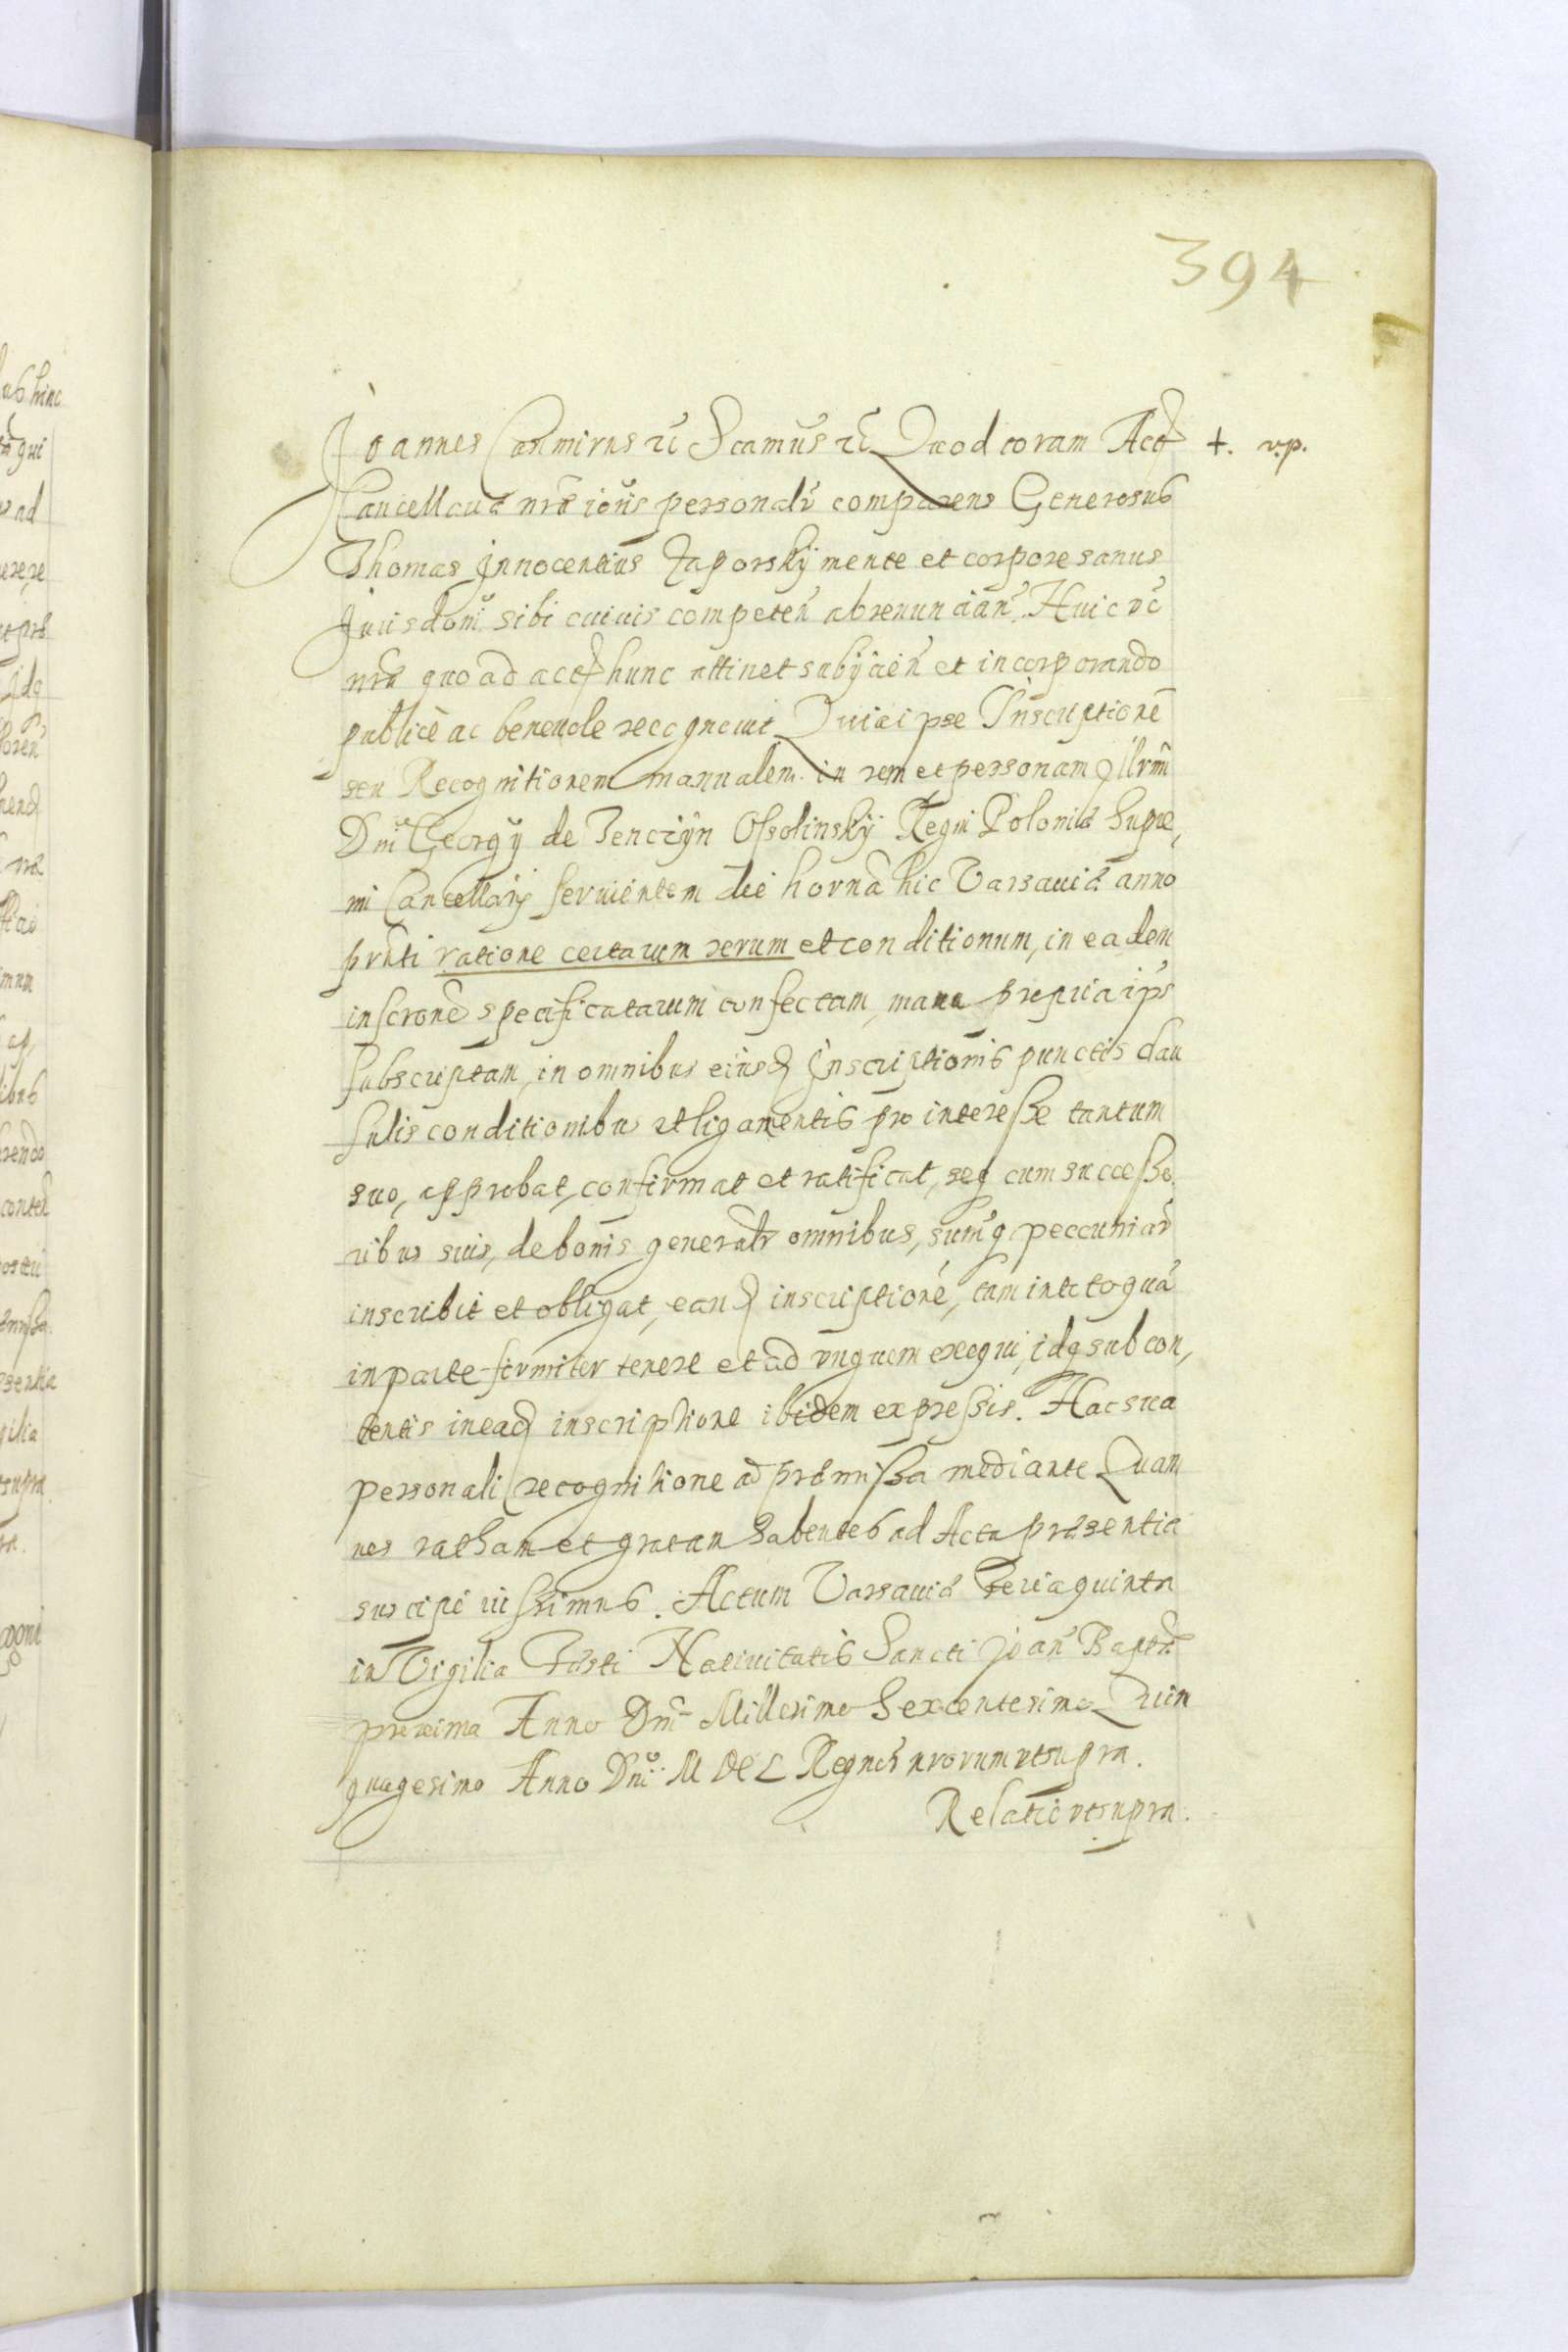 394
Joannes Casimirus etc̃ Scamus̃ etc̃ Quod coram Actę + v.p.
Cancellaria nrã ioñs personalr̃ comparens Generosus
Thomas Innocentius Zaporskÿ mente et corpore sanus
Jurisdoni sibi cuiuis competeñ abrenuncian̄. Huic vč
nrã quo ad actę hunc attinet subijcieñ et incorporando
publicè ac beneuole recognouit Quia ipse Inscriptionẽ
seu Recognitionem manualem in rem et personam Illrm̃
Dnĩ Georgÿ de Tenczÿn Ossolinskÿ Regni Poloniæ Supre,
mi Cancellarÿ seruientem die horna hic Varsauiæ anno
prñti ratione certarum rerum et conditionum, in eadem
inscronẽ specificatarum confectam, manu propria ips̃
subscriptam, in omnibus eiusd̨ Inscriptionis punctis clau
sulis conditionibus et ligamentis pro interesse tantum
suo, approbat, confirmat et ratificat, seq̨ cum successo,
ribus suis, de bonis generalr̃ omnibus, sum̃q̨ peccuniar̃
inscribit et obligat, eand̨ inscriptionẽ, tam in toto quã
in parte firmiter tenere et ad vnguem exequi, idq̨ sub con,
tentis in ead̨ inscriptione ibidem expressis. Hac sua
personali recognitione ad præmissa mediante Quam
nos ratham et gratam habentes ad Acta præsentia
suscipi iussimus. Actum Varsauiæ Feria quinta
in Vigilia Festi Natiuitatis Sancti Joan̄ Baptæ
proxima Anno Dnĩ Millesimo Sexcentesimo Quin
quagesimo Anno Dnĩ M DC L Regnor̃ nrorum vt supra.
Relatio vt supra.